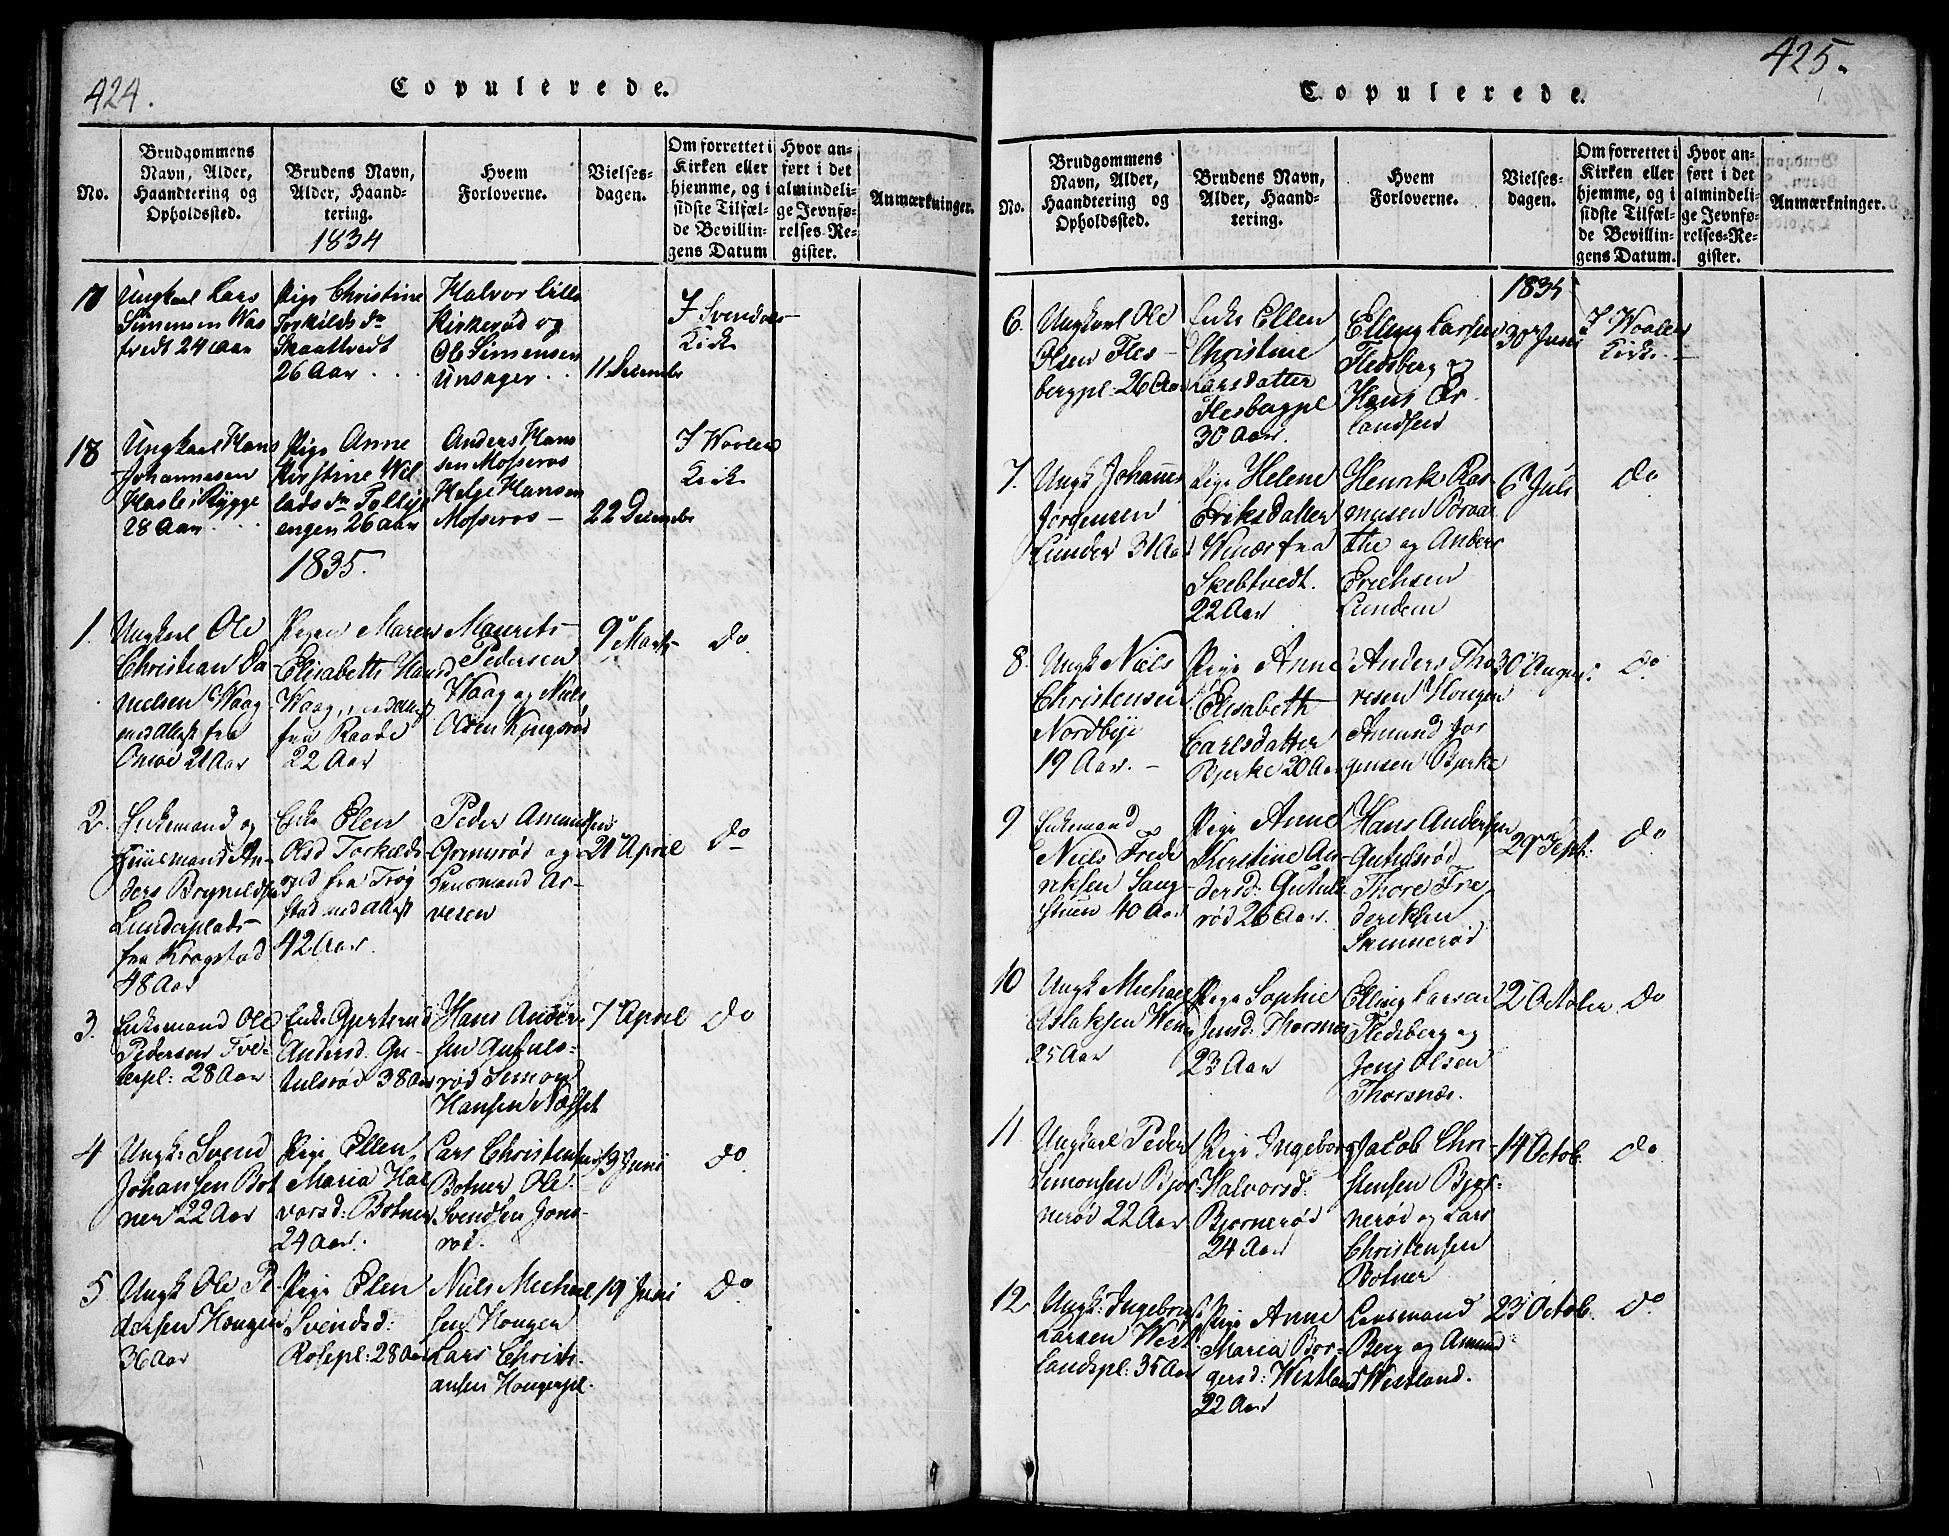 424.
Copulerede.
No.
Brudgommens
Navn, Alder,
Haandtering og
Opholdssted.
Brudens Navn,
Alder, Haand-
tering.
1834
Hvem
Forloverne.
Vielses-
dagen.
Om forrettet i
Kirken eller
hjemme, og i
sidste Tilfæl-
de Bevillin-
gens Datum
Hvor an-
ført i det
almindeli-
ge Jevnfø-
relses-Re-
gister.
Anmærkninger.
Ungkarl Lars
Simensen
24 Aar
Pige Christine
Torkilds dr
Skaattvedt
26 Aar
Halvor Lille
Kirkerød og
Ole Simensen
11 December
I
Kirke
18
Ungkarl Hans
Johannesen
Hasle i Rygge
28 Aar
Pige Anne
Kirstine
engen 26 aar
Anders Han
sen Mosseros
Helge Hansen
Mosseros
22 December
I Waaler
Kirke
1835.
1.
Ungkarl Ole
Christian Da
nielsen Waag
med Attest fra
Onsøe 21 Aar
Pigen Maren
Elisabeth Hansd
Waag, med Attest
fra Raade
22 Aar
Maurits
Pedersen
Waag og Niels
Olsen Kjngsrød
9de Marts
do
2.
Enkemand og
Huusmand An-
ders Brynildsen
Lunderplads
fra Kraagstad
48 Aar
Enke Elen
Olsd Torkilds
rud fra Trøg
stad med Attest
42 Aar
Peder Amundsen
Grimsrød og
Lensmand Ar-
vesen
21 April
do
3.
Enkemand Ole
Pedersen Tve-
terpl: 28 Aar
Enke Gjertrud
Andersd. Gu-
tulsrød 38 Aar
Hans Ander-
sen Gutuls-
rød Simon
Hansen Næsset
7 April
do
4
Ungk: Svend
Johansen Bot
ner 22 Aar
Pige Ellen
Maria Hal
vorsd: Botner
24 Aar.
Lars Christensen
Botner Ole
Svendsen Jons-
rød.
9 Juni
do
5
Ungk Ole P
dersen Hougen
36 Aar
Pige Elen
Svendsd:
Rosepl: 28 Aar
Niels Michael
sen Hougen
Lars Christi-
ansen Hougerpl.
19 Juni
do
425.
Copulerede.
No.
Brudgommens
Navn, Alder,
Haandtering og
Opholdssted.
Brudens Navn,
Alder, Haand-
tering.
Hvem
Forloverne.
Vielses-
dagen.
Om forrettet i
Kirken eller
hjemme, og i
sidste Tilfæl-
de Bevillin-
gens Datum.
Hvor an-
ført i det
almindeli-
ge Jevnfø-
relses-Re-
gister.
Anmærkninger.
1835
6.
Ungkarl Ole
Olsen Fles-
bergpl. 26 Aar
Enke Ellen
Christine
Larsdatter
Flesbergpl
30 Aar.
Elling Larsen
Flesberg og
Hans Er
landsen
30 Juni
I Waaler
Kirke
7.
Ungk Johannes
Jørgensen
Lunder 31 Aar
Pige Helene
Eriksdatter
Winæs fra
Skebtvedt.
22 Aar
Henrik Ras-
musen
og Anders
Erichsen
Lundern
6 Juli
do
8.
Ungk Niels
Christensen
Nordbye
19 Aar.
Pige Anne
Elisabeth
Carlsdatter
Bjerke 20 Aar
Anders Tho
resen Hougen
Amund Jør
gensen Bjerke
30 August
do
9
Enkemand
Niels Frede
riksen Lang-
stuen 40 Aar
Pige Anne
Kirstine An
dersd: Gutuls
rød 26 Aar.
Hans Andersen
Gutulsrød
Thore Fre
deriksen
Skinnerød
29 Sept:
do
10
Ungk Michael
Aslaksen
25 Aar
Pige Sophie
Jensd: Thorsnæs
23 Aar
Elling Larsen
Flesberg og
Jens Olsen
Thorsnæs.
2 October
do
11
Ungkarl Peder
Simonsen Bjør-
nerød 22 Aar
Pige Ingeborg
Halvorsd:
Bjørnerød
24 Aar
Jacob Chri-
stensen Bjør-
nerød og Lars
Christensen
Botner
14 Octob.
do
12
Ungk: Ingebrigt
Larsen West
landspl: 35 Aar
Pige Anne
Maria Bor-
gersd: Westland
22 Aar
Lensmand
Berg og Amund
Westland.
23 Octob.
do